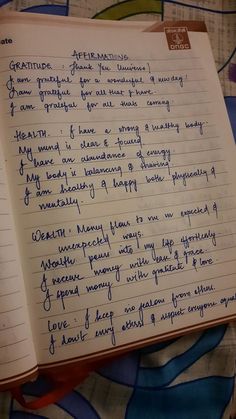 ate
ONGC
AFFIRMATIONS
GRATITUDE : Thank You Universe!
I am grateful for a wonderful & new day!
I am grateful for all that I have.
I am grateful for all thats coming
HEALTH : I have a strong & healthy body.
My mind is clear & focused.
I have an abundance of energy.
My body is balancing & sharing
I am healthy & happy both physically &
mentally.
WEALTH : Money flows to me in expected &
unexpected ways.
Wealth pours into my life effortlessly
I receive money with ease & grace
I spend money with gratitude & love
LOVE : I keep no from others.
I don't envy others & respect everyone